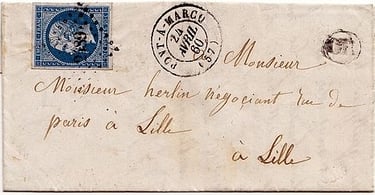 PONT-À-MARCQ
24
AVRIL
60
(57)
Monsieur
Monsieur herlin négociant rue de
paris à Lille
à Lille